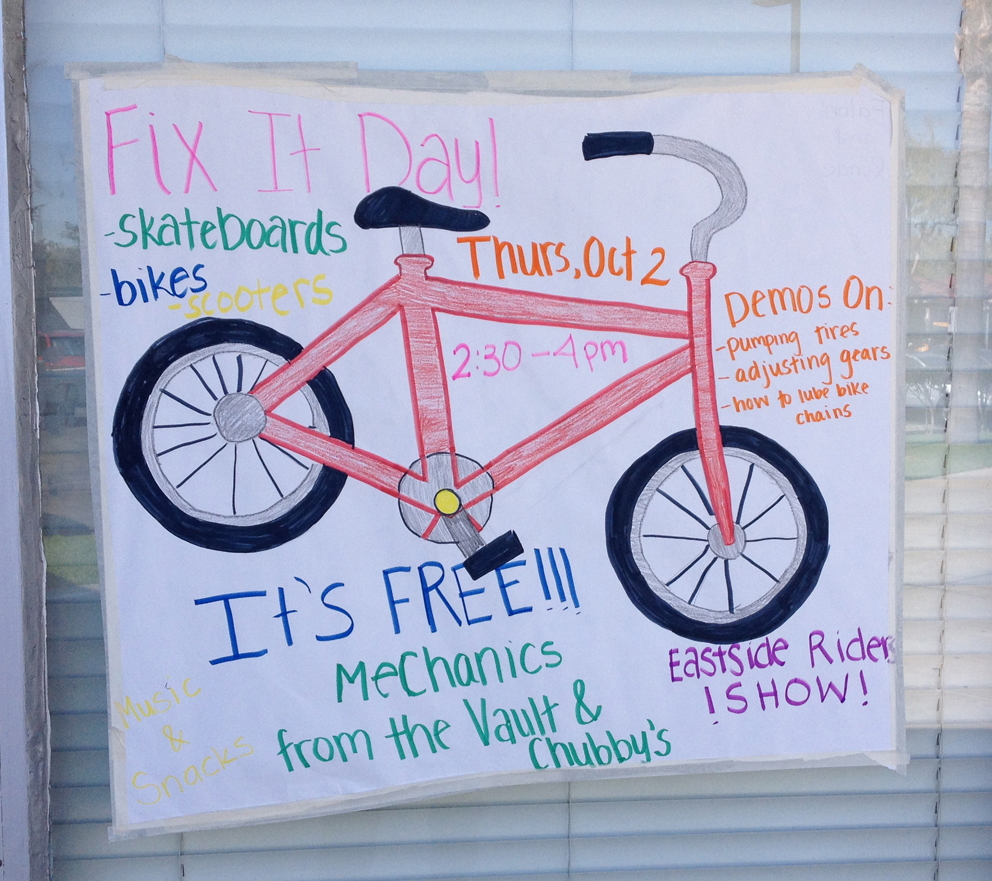 Fix It Day!
-skateboards
-bikes
-scooters
Thurs, Oct 2
2:30-4pm
Demos On:
-pumping tires
- adjusting gears
-how to lube bike
chains
It's FREE!!!
Mechanics
from the Vault &
Chubby's
Eastside Riders
!SHOW!
Music
&
Snacks